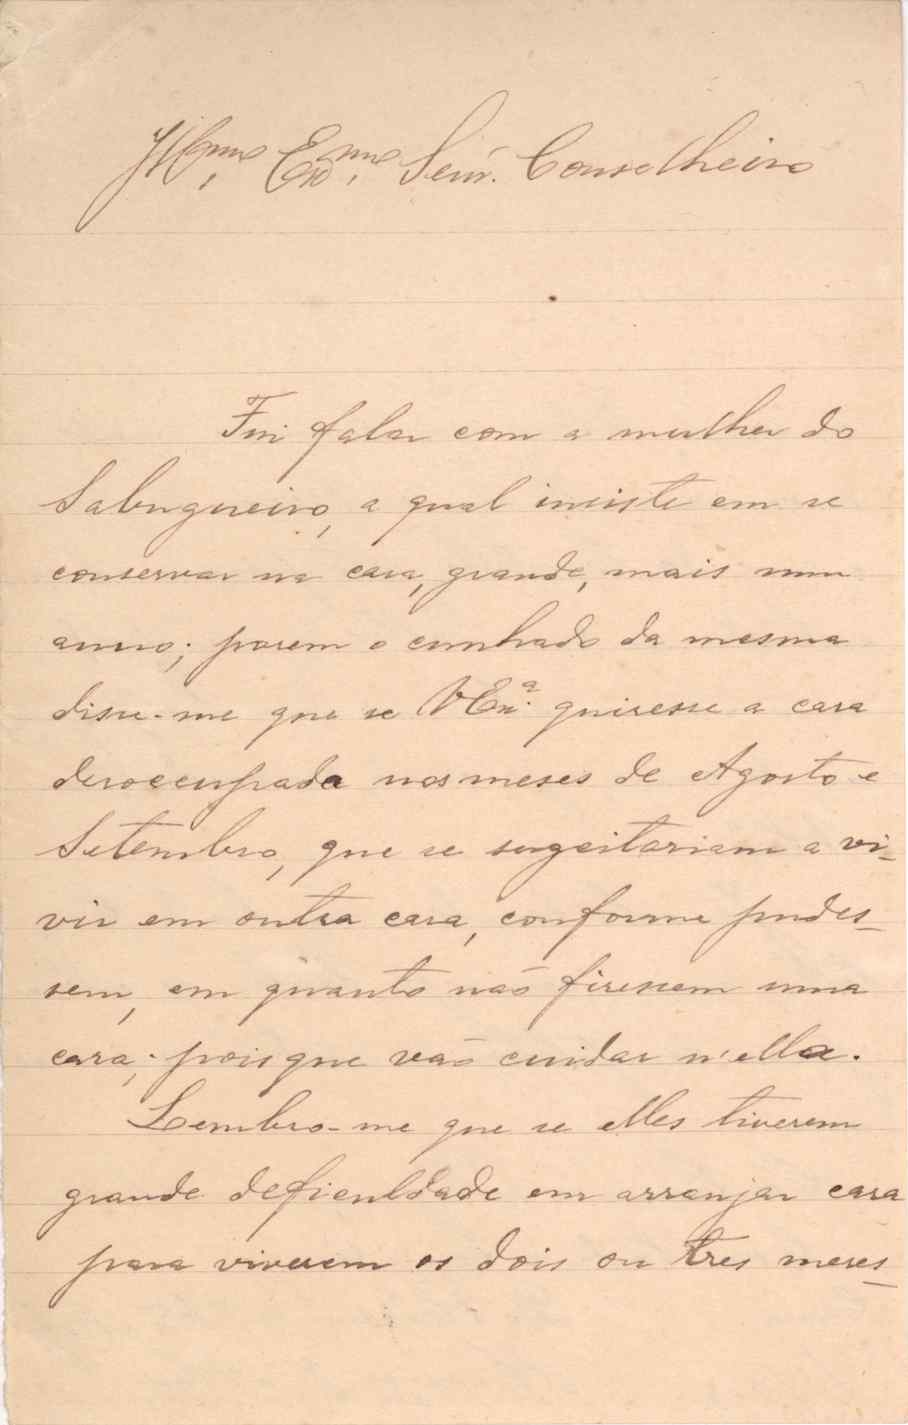 Illmo. Exmo. Senr. Conselheiro
Fui falar com a mulher do
Sabugueiro, a qual insiste em se
conservar na casa, grande, mais num
anno; porem o cunhado da mesma
disse-me que se V Exa. quisesse a casa
desoccupada nos meses de Agosto e
Setembro, que se sugeitariam a vi-
vir em outra casa, conforme pudes-
sem, em quanto não fisessem uma
casa; pois que vão cuidar n'ella.
Lembro-me que se elles tiverem
grande deficuldade em arranjar casa
para viverem os dois ou tres meses